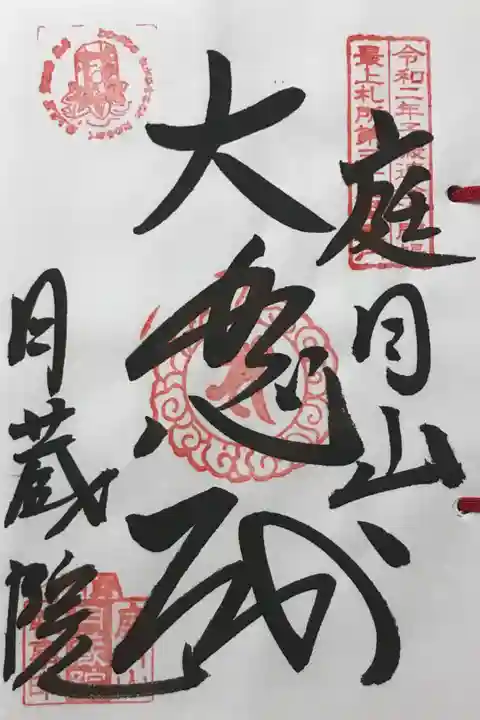 令和二年子歳
最上札所第三十
庭月山
大悲殿
月蔵院